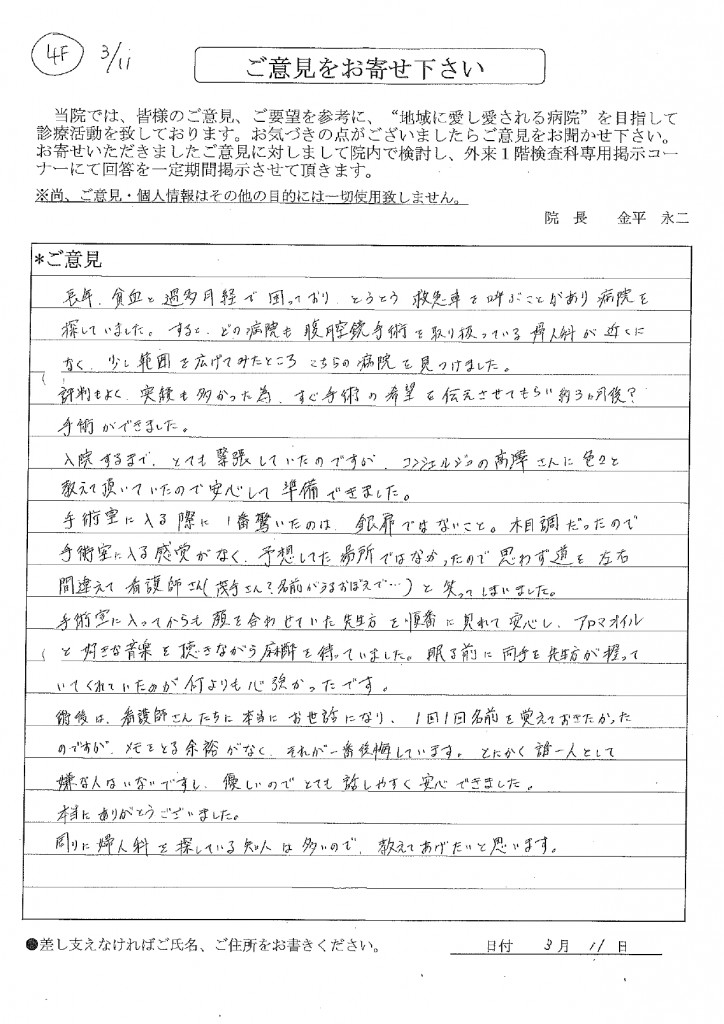 4F 3/11
ご意見をお寄せ下さい
当院では、皆様のご意見、ご要望を参考に、“地域に愛し愛される病院”を目指して
診療活動を致しております。お気づきの点がございましたらご意見をお聞かせ下さい。
お寄せいただきましたご意見に対しまして院内で検討し、外来１階検査科専用掲示コー
ナーにて回答を一定期間掲示させて頂きます。
※尚、ご意見・個人情報はその他の目的には一切使用致しません。
院 長 金平 永二
*ご意見
長年、貧血と過多月経で困っており、とうとう救急車を呼ぶことがあり病院を
探していました。すると、どの病院も腹腔鏡手術を取り扱っている婦人科が近くに
なく、少し範囲を広げてみたところこちらの病院を見つけました。
評判もよく、実績も多かった為、すぐ手術の希望を伝えさせてもらい約3ヵ月後?
手術ができました。
入院するまで、とても緊張していたのですが、コンシェルジュの高澤さんに色々と
教えて頂いていたので安心して準備できました。
手術室に入る際に1番驚いたのは、銀扉ではないこと。木目調だったので
手術室に入る感覚がなく、予想してた場所ではなかったので思わず道を左右
間違えて看護師さん(茂手さんて名前がうるおぼえで…)と笑ってしまいました。
手術室に入ってからも顔を合わせていた先生方を順番に見れて安心し、アロマオイル
と好きな音楽を聴きながら麻酔を待っていました。眠る前に両手を先生方が握って
いてくれていたのが何よりも心強かったです。
術後は、看護師さんたちに本当にお世話になり、1回1回名前を覚えておきたかった
のですが、メモをとる余裕がなく、それが一番後悔しています。とにかく誰一人として
嫌な人はいないですし、優しいのでとても話しやすく安心できました。
本当にありがとうございました。
周りに婦人科を探している知人は多いので、教えてあげたいと思います。
●差し支えなければご氏名、ご住所をお書きください。 日付 3月 11日